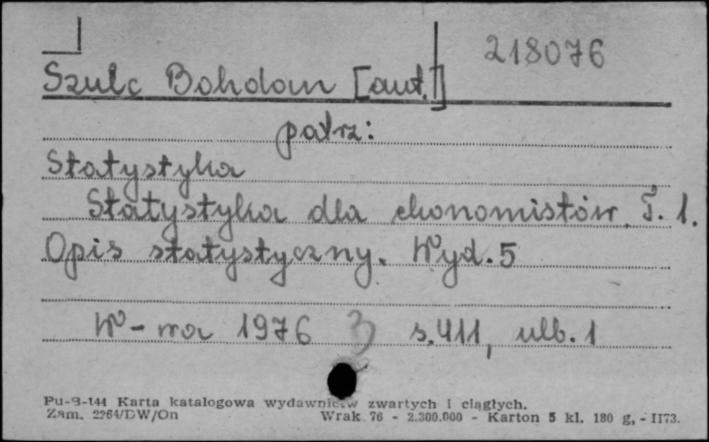 218076
Szulc Bohdan [aut.]
patrz:
Statystyka
Statystyka dla ekonomistów. T. 1.
Opis statystyczny. Wyd. 5
W-wa 1976 3 s. 411, nlb. 1
Pu-B-144 Karta katalogowa wydawnictw zwartych i ciągłych.
Zam. 2264/DW/On Wrak. 76 - 2.300.000 - Karton 5 kl. 180 g, - II73.